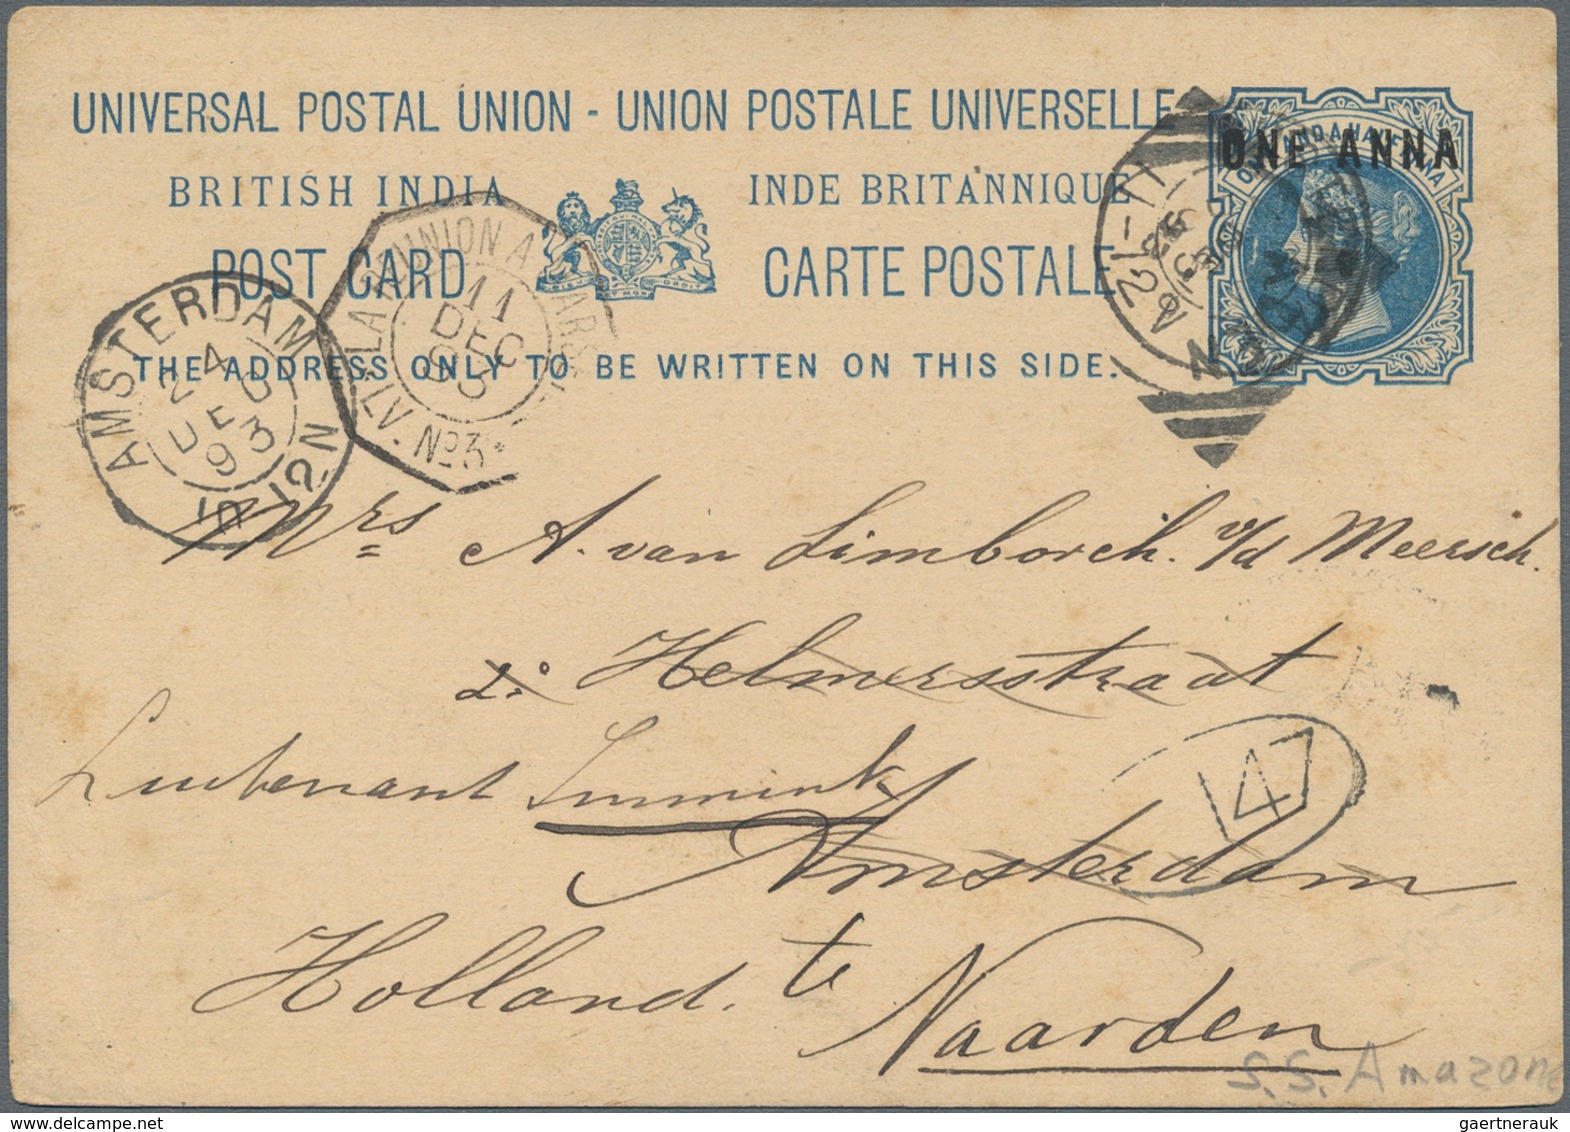 UNIVERSAL POSTAL UNION - UNION POSTALE UNIVERSELLE
BRITISH INDIA INDE BRITANNIQUE
POST CARD CARTE POSTALE
THE ADDRESS ONLY TO BE WRITTEN ON THIS SIDE.
ONE ANNA
AMSTERDAM
24
DEC
93
LA REUNION A MARS
11
DEC
93
LV. No 3
Mrs A. van Limborch. v/d Meersch.
2e Helmersstraat
Lieutenant Lummink
Amsterdam
14
Holland. te
Naarden
S.S. Amazone
gaertnerauk@...com